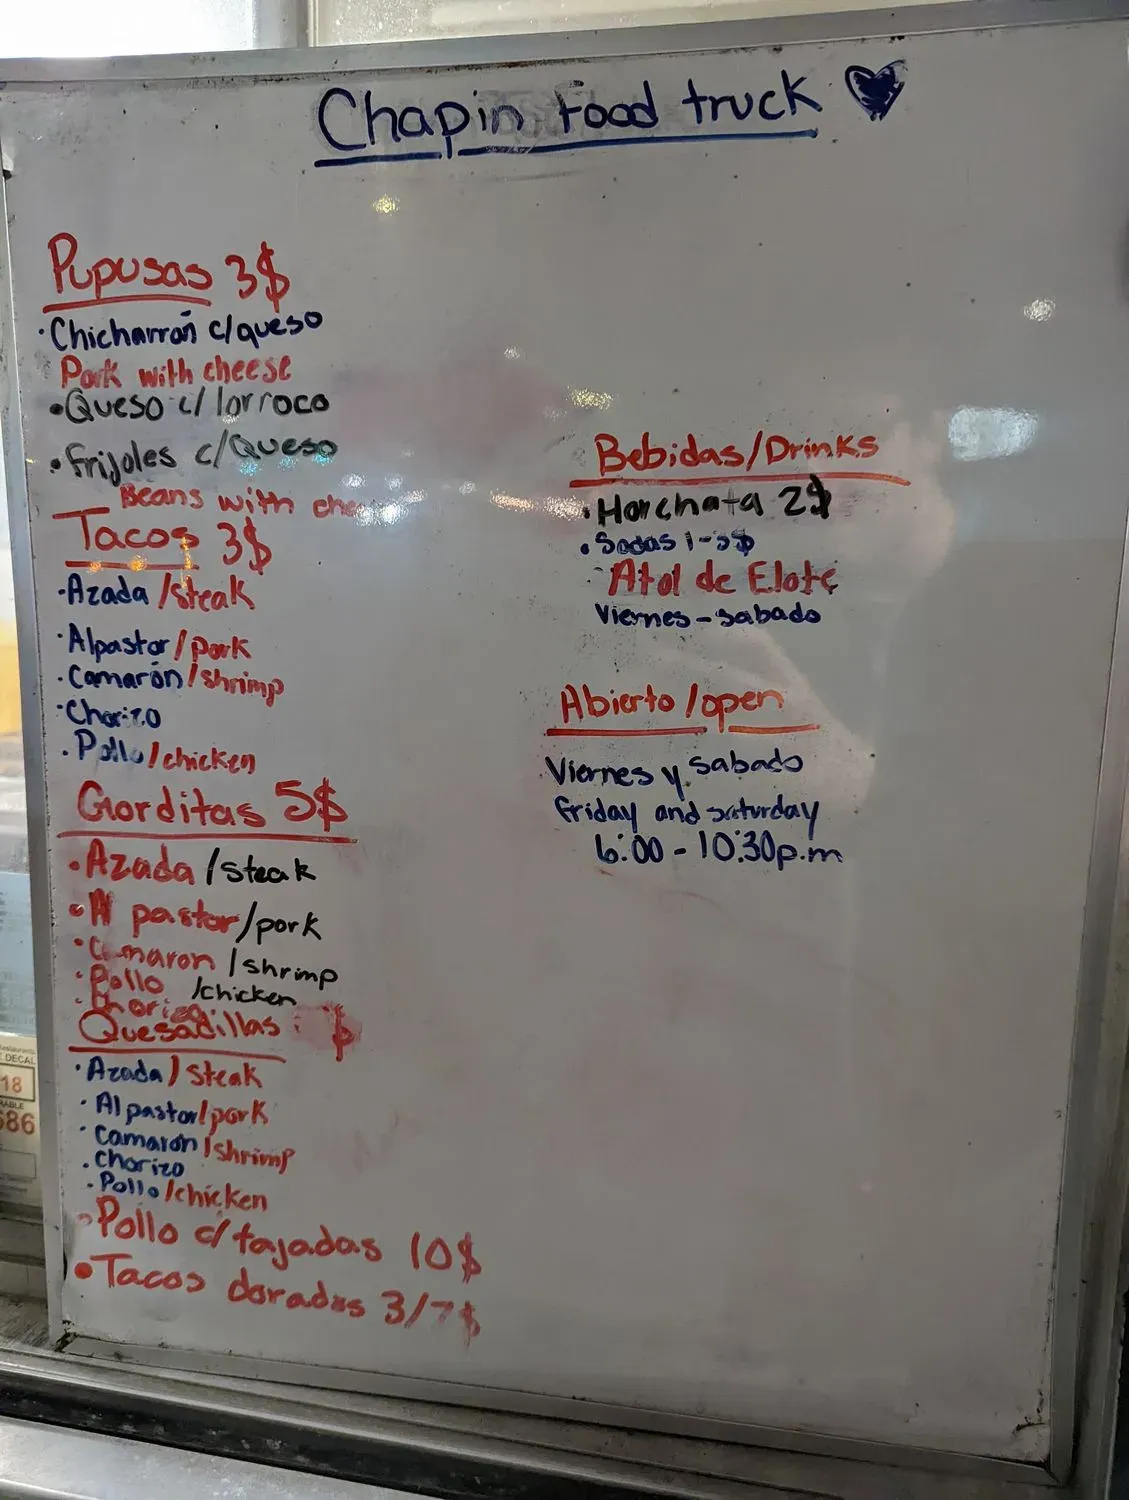 Chapin Food truck
Pupusas 3$
Chicharrón c/queso
Pork with cheese
Queso c/ lorroco
Frijoles c/Queso
Beans with
Tacos 3$
Azada/steak
Alpastor/pork
Camarón/shrimp
Chorizo
Pollo/chicken
Gorditas 5$
Azada/steak
Al pastor/pork
Camaron/shrimp
Pollo/chicken
Chorizo
Quesadillas $
Azada/steak
Al pastor/pork
Camarón/shrimp
Chorizo
Pollo/chicken
Pollo c/tajadas 10$
Tacos dorados 3/7$
Bebidas/Drinks
Horchata 2$
Sodas
Atol de Elote
Viernes-sabado
Abierto/open
Viernes y sabado
Friday and saturday
6:00-10:30p.m
DECAL
18
686